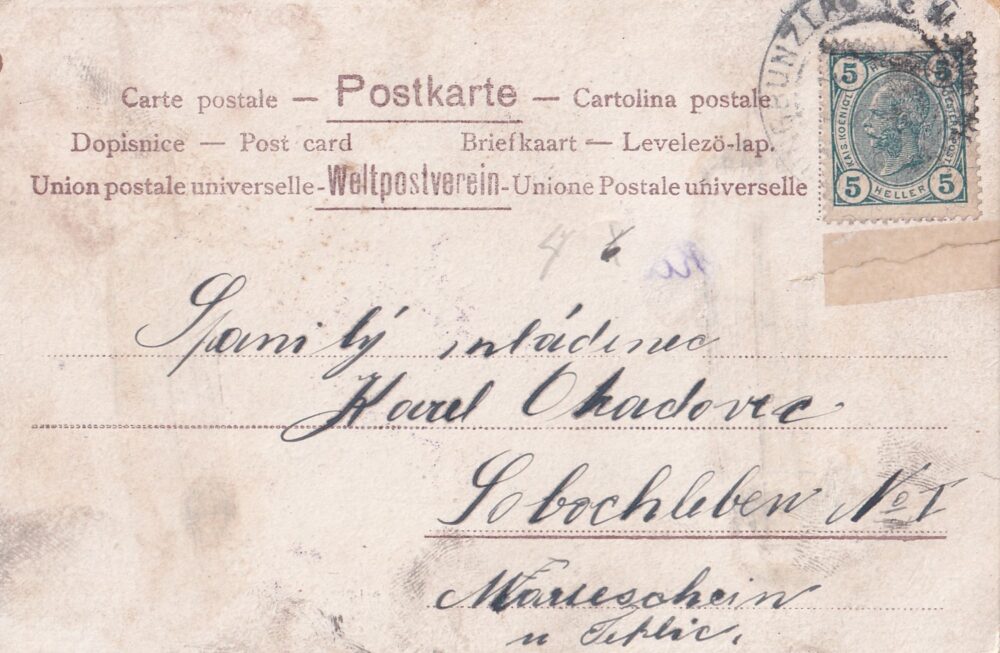 Carte postale — Postkarte — Cartolina postale
Dopisnice — Post card Briefkaart — Levelezö-lap.
Union postale universelle-Weltpostverein-Unione Postale universelle
5 HELLER 5
KAIS. KOENIGL.
5 HELLER 5
Spanilý mládenec
Karel
Sobochleben No I
Marieschein
u Teplic.